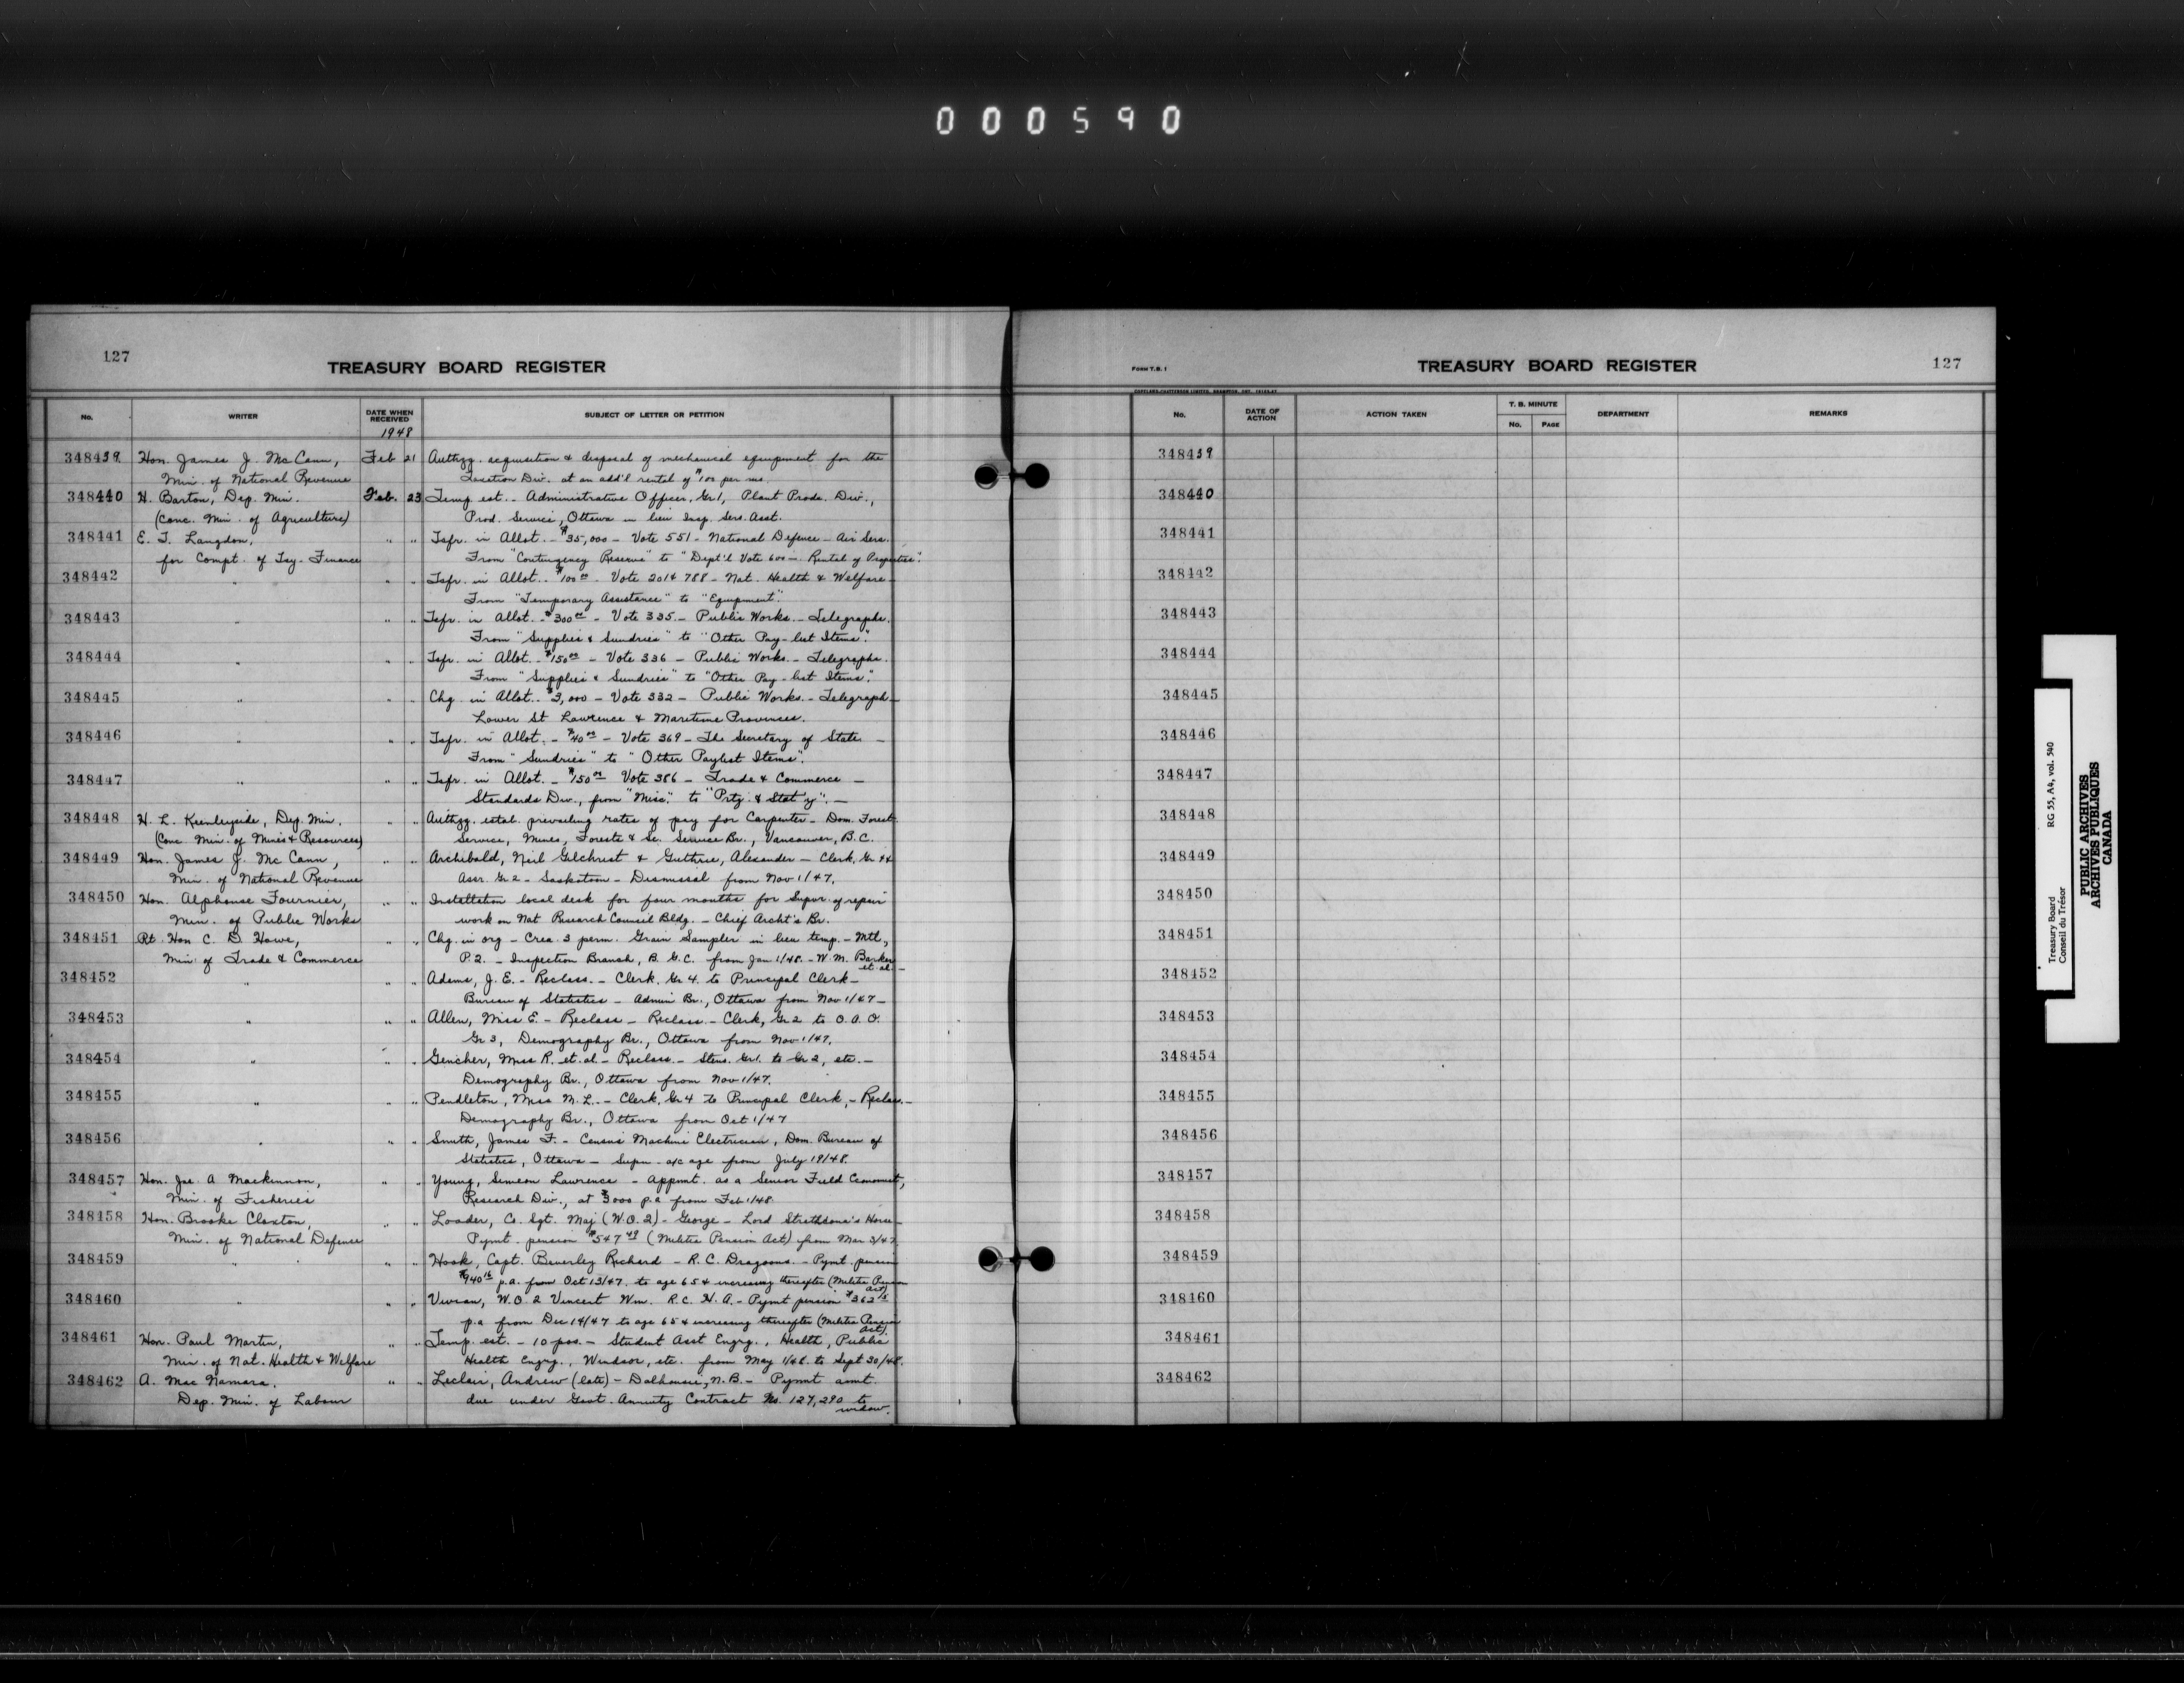 000590
127
TREASURY BOARD REGISTER
No. WRITER DATE WHEN RECEIVED SUBJECT OF LETTER OR PETITION
1948
348439 Hon. James J. McCann, Feb 21 Authzg. acquisition & disposal of mechanical equipment for the
Min. of National Revenue Taxation Div. at an add'l rental of $100 per mo.
348440 H. Barton, Dep. Min. Feb. 23 Temp. est. - Administrative Officer, Gr 1, Plant Prods. Div.,
(Conc. Min. of Agriculture) Prod. Service, Ottawa in lieu Insp. Serv. Asst.
348441 E. T. Langdon, " " Tsfr. in Allot. - $35,000 - Vote 551 - National Defence - Air Serv.
for Compt. of Tsy - Finance From "Contingency Reserve" to "Dept'l Vote 600 - Rental of Properties".
348442 " " " Tsfr. in Allot. - $100 00 - Vote 201+788 - Nat. Health & Welfare -
From "Temporary Assistance" to "Equipment".
348443 " " " Tsfr. in Allot. - $300 00 - Vote 335 - Public Works. - Telegraphs.
From "Supplies & Sundries" to "Other Pay-list Items".
348444 " " " Tsfr. in Allot. - $150 00 - Vote 336 - Public Works. - Telegraphs.
From "Supplies & Sundries" to "Other Pay-list Items".
348445 " " " Chg. in Allot. - $3,000 - Vote 332 - Public Works. - Telegraph -
Lower St Lawrence & Maritime Provinces.
348446 " " " Tsfr. in Allot. - $40 00 - Vote 369 - The Secretary of State -
From "Sundries" to "Other Paylist Items".
348447 " " " Tsfr. in Allot. - $150 00 Vote 386 - Trade & Commerce -
Standards Div., from "Misc." to "Prtg. & Stat'y". -
348448 H. L. Keenleyside, Dep. Min. " " Authzg. estab. prevailing rates of pay for Carpenter - Dom. Forest
(Conc Min. of Mines & Resources) Service, Mines, Forests & Sc. Service Br., Vancouver, B.C.
348449 Hon. James J. McCann, " " Archibald, Neil Gilchrist & Guthrie, Alexander - Clerk, Gr 4 &
Min. of National Revenue Assr. Gr 2 - Saskatoon - Dismissal from Nov 1/47.
348450 Hon. Alphonse Fournier, " " Installation local desk for four months for Supvr. of repair
Min. of Public Works work on Nat. Research Council Bldg. - Chief Archt's Br.
348451 Rt. Hon C. D. Howe, " " Chg. in org - Crea. 3 perm. Grain Sampler in lieu temp. - Mtl.,
Min. of Trade & Commerce P.2. - Inspection Branch, B.G.C. from Jan 1/48. - W. M. Barker
et. al. -
348452 " " " Adams, J. E. - Reclass. - Clerk, Gr 4 to Principal Clerk -
Bureau of Statistics - Admin Br., Ottawa from Nov 1/47 -
348453 " " " Allen, Miss E. - Reclass - Reclass. - Clerk, Gr 2 to O.A.O.
Gr 3, Demography Br., Ottawa from Nov 1/47.
348454 " " " Gencher, Miss R. et. al - Reclass. - Steno. Gr 1. to Gr 2, etc. -
Demography Br., Ottawa from Nov 1/47.
348455 " " " Pendleton, Miss M. L. - Clerk, Gr 4 to Principal Clerk, - Reclass. -
Demography Br., Ottawa from Oct 1/47
348456 " " " Smith, James F. - Census Machine Electrician, Dom. Bureau of
Statistics, Ottawa - Supn - a/c age from July 19/48.
348457 Hon. Jas. A Mackinnon, " " Young, Simeon Lawrence - Appmt. as a Senior Field Economist,
Min. of Fisheries Research Div., at $3000 p.a from Feb 1/48
348458 Hon. Brooke Claxton, " " Loader, Co. Sgt. Maj (W.O.2) - George - Lord Strathcona's Horse -
Min. of National Defence Pymt. pension $547 49 (Militia Pension Act) from Mar 3/47
348459 " " " Hook, Capt. Beverley Richard - R.C. Dragoons. - Pymt. pension
$940 16 p.a. from Oct 13/47. to age 65 & increasing thereafter (Militia Pension
Act)
348460 " " " Vivian, W.O. 2 Vincent Wm. R.C.H.A. - Pymt pension $362 15
p.a from Dec 14/47 to age 65 & increasing thereafter (Militia Pension
Act)
348461 Hon. Paul Martin, " " Temp. est. - 10 pos. - Student Asst Engrg., Health, Public
Min. of Nat. Health & Welfare Health Engrg., Windsor, etc. from May 1/48. to Sept 30/48.
348462 A. MacNamara, " " Leclair, Andrew (late) - Dalhousie, N.B. - Pymnt amt.
Dep. Min. of Labour due under Govt. Annuity Contract No. 127,290 to
widow.
FORM T.B. 1
TREASURY BOARD REGISTER
127
No. DATE OF ACTION ACTION TAKEN T. B. MINUTE No. PAGE DEPARTMENT REMARKS
348439
348440
348441
348442
348443
348444
348445
348446
348447
348448
348449
348450
348451
348452
348453
348454
348455
348456
348457
348458
348459
348460
348461
348462
Treasury Board RG 55, A4, vol. 540
Conseil du Trésor
PUBLIC ARCHIVES
ARCHIVES PUBLIQUES
CANADA